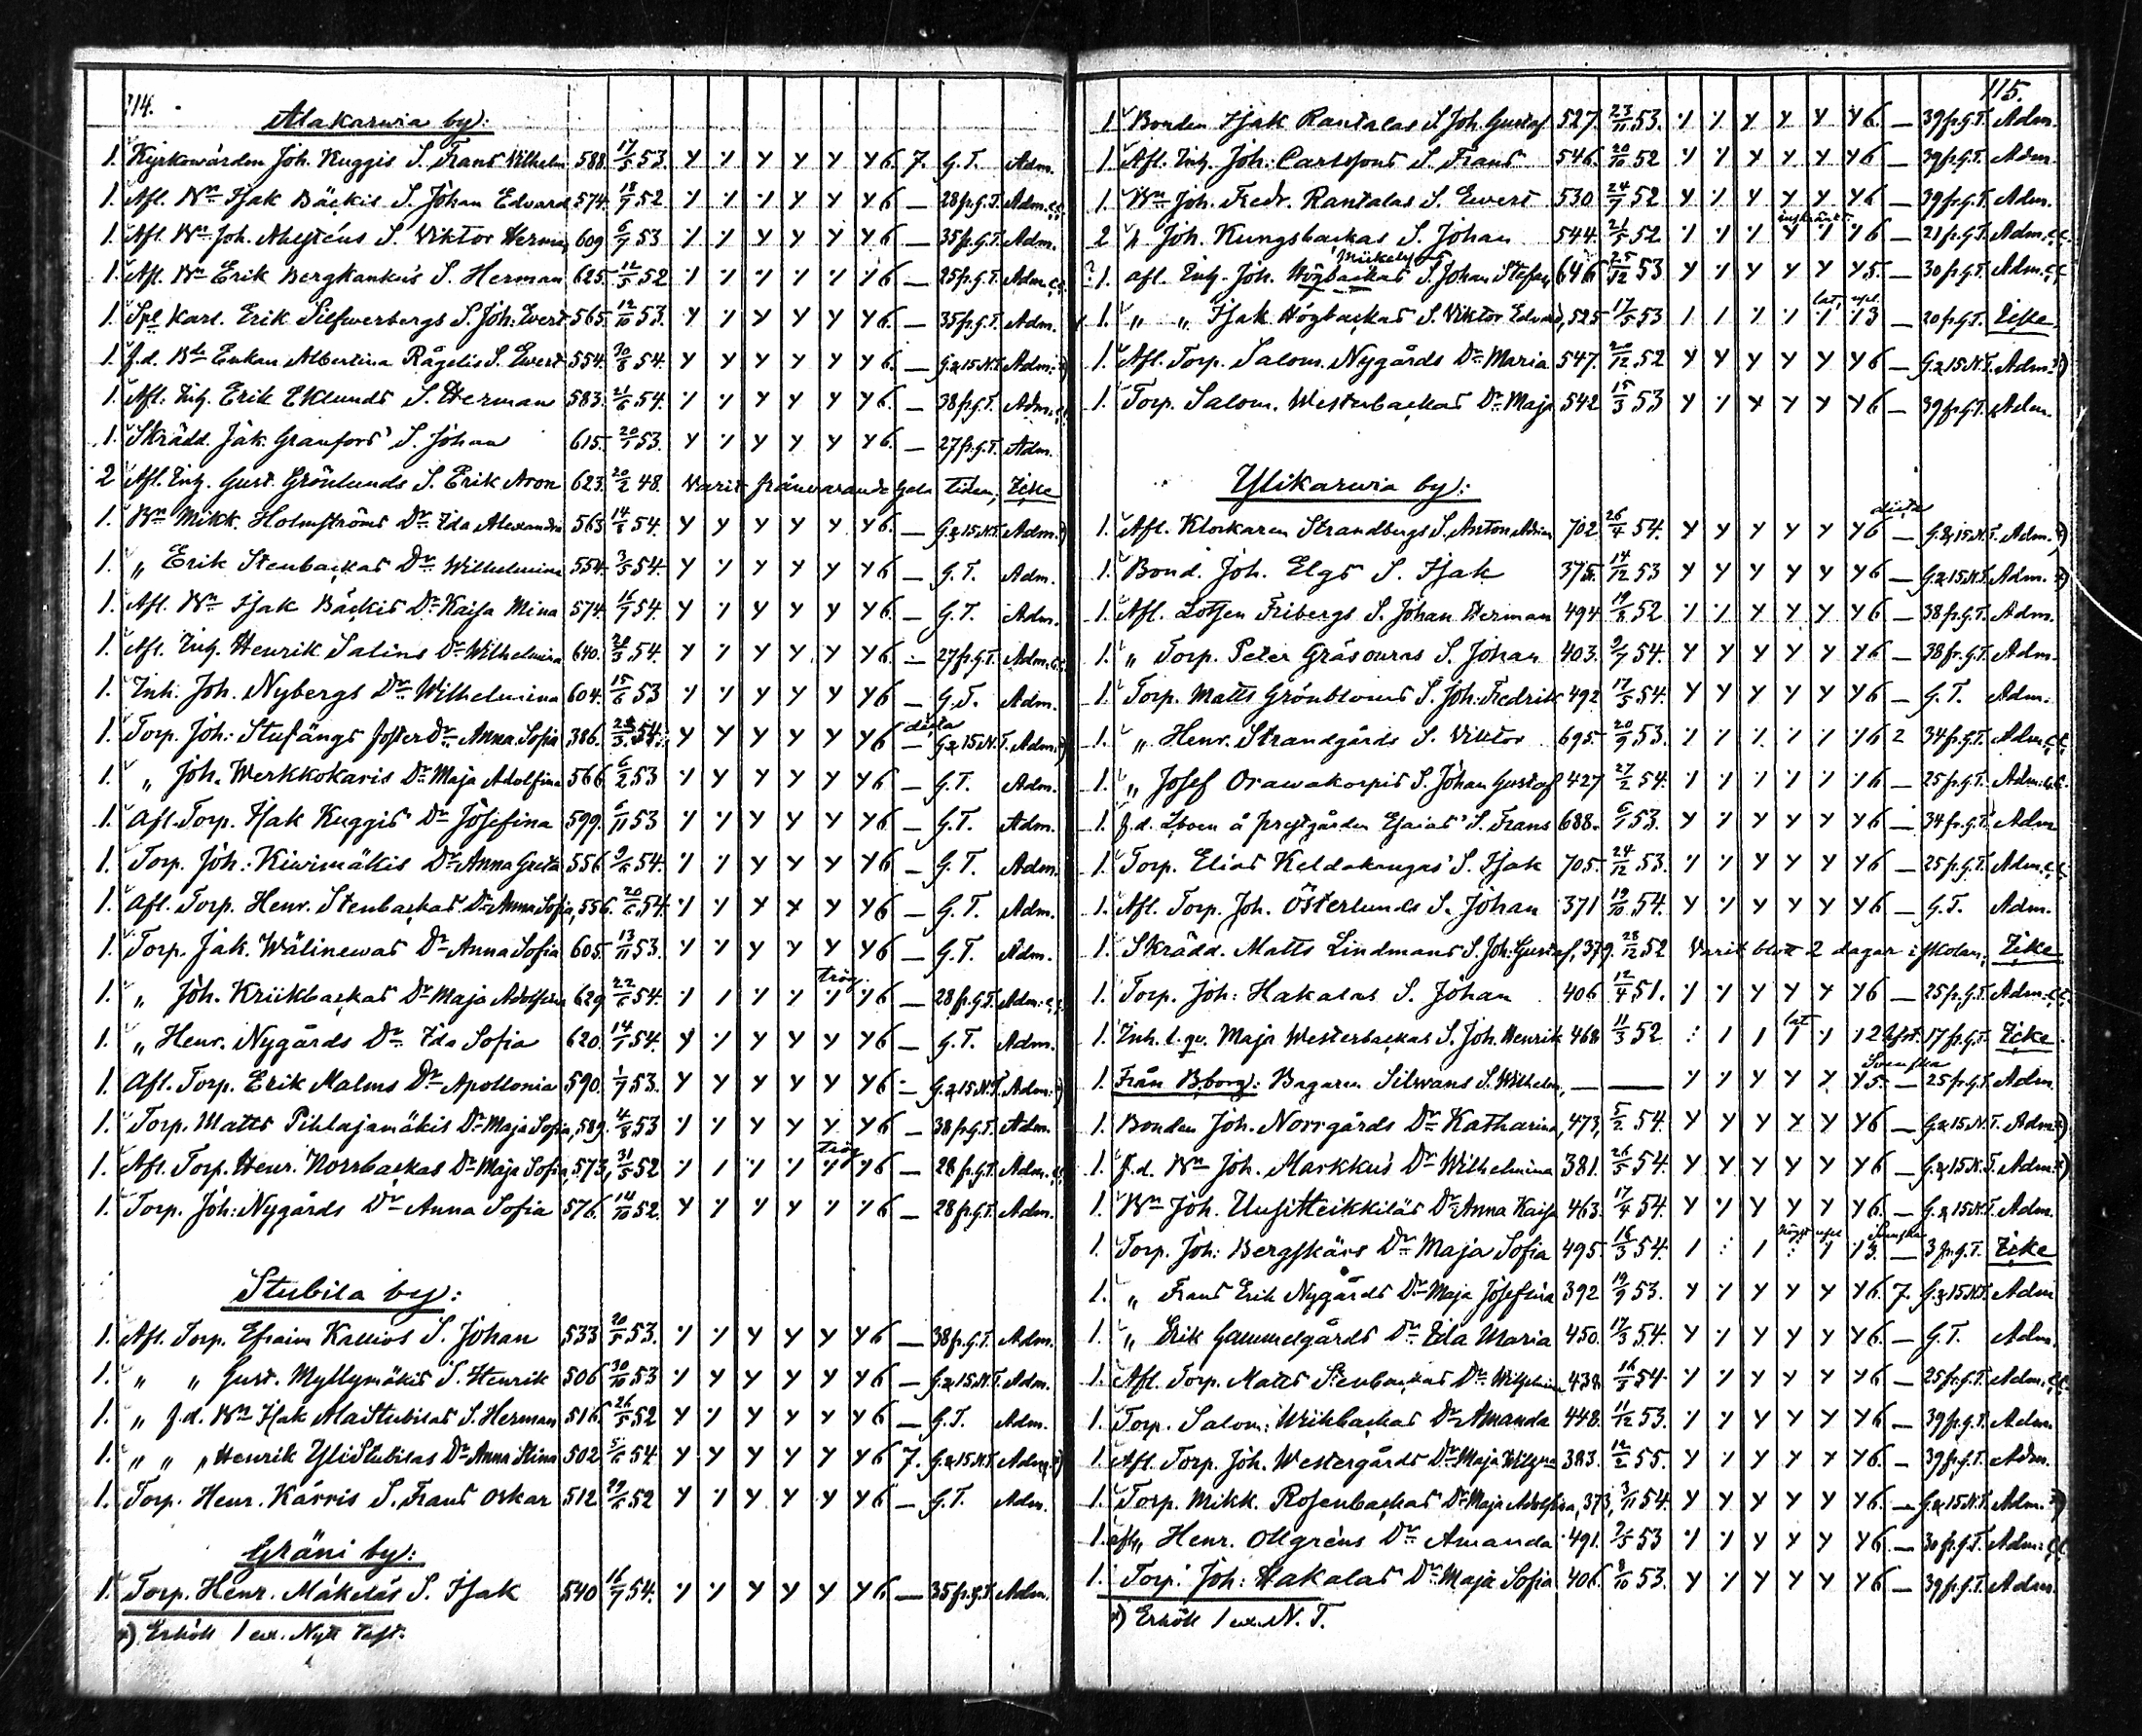 114.
Alakarwia by:
1. Kyrkowärden Joh. Kuggis S. Frans Wilhelm 588. 17/5 53. 6. 7. G.T. Adm.
1. Afl. Bn Isak Bäckis S. Johan Edvard 574. 18/7 52 6 — 28 fr. G.T. Adm.
1. Afl. Bn Joh. Ahlsténs S. Viktor Herm. 609 6/7 53 6 — 35 fr. G.T. Adm.
1. Afl. Bn Erik Bergkankus S. Herman 625. 12/5 52 6 — 25 fr. G.T. Adm.
1. Spl Karl Erik Silfwerbergs S. Joh: Evert 565. 12/10 53. 6. — 35 fr. G.T. Adm.
1. f.d. Bd Enkan Albertina Rågelis S. Evert 554. 30/8 54. 6. — G. & 15 N.T. Adm. *)
1. Afl. Inh. Erik Eklunds S. Herman 583. 21/6 54. 6. — 38 fr. G.T. Adm.
1. Skrädd. Jak. Granfors' S. Johan 615. 20/1 53. 6. — 27 fr. G.T. Adm.
2 Afl. Inh. Gust. Grönlunds S. Erik Aron 623. 20/2 48. Varit frånvarande hela tiden, Icke
1. Bn Mikk. Holmströms Dr Ida Alexandra 563 14/8 54. 6. — G. & 15 N.T. Adm. *)
1. „ Erik Stenbackas Dr Wilhelmina 554. 3/5 54. 6 — G.T. Adm.
1. Afl. Bn Isak Bäckis Dr Kajsa Mina 574. 16/7 54. 6. — G.T. Adm.
1. Afl. Inh. Henrik Salins Dr Wilhelmina 640. 54. 6. — 27 fr. G.T. Adm.
1. Inh. Joh. Nybergs Dr Wilhelmina 604. 15/6 53 6 — G.T. Adm.
dista
1. Torp. Joh: Stufängs foster Dr Anna Sofia 386. 54. 6 — G. & 15 N.T. Adm. *)
1. „ Joh. Werkkokaris Dr Maja Adolfina 566 6/2 53 6 — G.T. Adm.
1. Afl. Torp. Isak Kuggis' Dr Josefina 599. 6/11 53 6 — G.T. Adm.
1. Torp. Joh: Kiwimäkis Dr Anna Greta 556 9/6 54. 6 — G.T. Adm.
1. Afl. Torp. Henr. Stenbackas Dr Anna Sofia, 556. 20/6 54. 6 — G.T. Adm.
1. Torp. Jak. Wälinewas Dr Anna Sofia 605. 13/11 53. 6 — G.T. Adm.
trög.
1. „ Joh. Kriikbackas Dr Maja Adolfina 629 22/6 54. 6 — 28 fr. G.T. Adm.
1. „ Henr. Nygårds Dr Ida Sofia 620. 14/1 54. 6 — G.T. Adm.
1. Afl. Torp. Erik Malms Dr Apollonia 590. 1/7 53. 6 — G. & 15 N.T. Adm. *)
1. Torp. Matts Pihlajamäkis Dr Maja Sofia, 589. 4/8 53 6 — 38 fr. G.T. Adm.
trög
1. Afl. Torp. Henr. Norrbackas Dr Maja Sofia, 573, 31/5 52 6 — 28 fr. G.T. Adm.
1. Torp. Joh: Nygårds Dr Anna Sofia 576. 14/10 52. 6 — 28 fr. G.T. Adm.
Stubila by:
1. Afl. Torp. Efraim Kallios S. Johan 533 20/5 53. 6 — 38 fr. G.T. Adm.
1. „ „ Gust. Myllymäkis S. Henrik 506 30/10 53 6 — G. & 15 N.T. Adm.
1. „ f.d. Bn Isak AlaStubilas S. Herman 516. 26/5 52 6 — G.T. Adm.
1. „ „ „ Henrik YliStubilas Dr Anna Stina 502 5/6 54 6 7. G. & 15 N.T. Adm. *)
1. Torp. Henr. Kärris S. Frans Oskar 512 52 6 — G.T. Adm.
Gräni by:
1. Torp. Henr. Mäkeläs S. Isak 540 16/7 54. 6 — 35 fr. G.T. Adm.
*) Erhöll 1 ex. Nytt Test.
115.
1 Bonden Isak Rantalas S. Joh. Gustaf 527. 23/11 53. 6. — 39 fr. G.T. Adm.
1. Afl. Inh. Joh: Carlssons S. Frans 546. 20/10 52 6 — 39 fr. G.T. Adm.
1. Bn Joh. Fredr. Rantalas S. Evert 530 24/7 52 6 — 39 fr. G.T. Adm.
2 h. Joh. Kungsbackas S. Johan 544. 21/5 52 6 — 21 fr. G.T. Adm.
1. afl. Inh. Joh. Högbackas S. Johan Stefan 646 25/12 53 5. — 30 fr. G.T. Adm.
lat, upl.
1. „ „ Isak Högbackas S. Viktor Edvard, 525 17/5 53 3 — 20 fr. G.T. Icke
1. Afl. Torp. Salom. Nygårds Dr Maria 547. 20/12 52 6 — G. & 15 N.T. Adm. *)
1. Torp. Salom. Westerbackas Dr Maja 542 15/3 53 6 — 39 fr. G.T. Adm.
Ylikarwia by:
dista
1. Afl. Klockaren Strandbergs S. Anton Adrian 702 26/4 54. 6 — G. & 15 N.T. Adm. *)
1. Bond. Joh. Elgs S. Isak 375. 14/12 53 6 — G. & 15 N.T. Adm. *)
1. Afl. Lotsen Fribergs S. Johan Herman 494 19/8 52 6 — 38 fr. G.T. Adm.
1. „ Torp. Peter Gräsouras S. Johan 403. 9/7 54. 6 — 38 fr. G.T. Adm.
1. Torp. Matts Grönbloms S. Joh. Fredrik 492 17/5 54. 6 — G.T. Adm.
1. „ Henr. Strandgårds S. Viktor 695 20/9 53. 6 2 34 fr. G.T. Adm.
1. „ Josef Orawakorpis S. Johan Gustaf 427 27/2 54. 6 — 25 fr. G.T. Adm.
1. f.d. Lboen å prestgården Esaias' S. Frans 688. 6/1 53. 6 — 34 fr. G.T. Adm
1. Torp. Elias Keldakangas' S. Isak 705 24/12 53. 6 — 25 fr. G.T. Adm.
1. Afl. Torp. Joh. Österlunds S. Johan 371 19/10 54. 6 — G.T. Adm.
1. Skrädd. Matts Lindmans S. Joh: Gustaf, 379. 28/12 52 Varit blott 2 dagar i skolan, Icke
1. Torp. Joh: Hakalas S. Johan 406 12/4 51. 6 — 25 fr. G.T. Adm.
lat
1. Inh. l. qv. Maja Westerbackas S. Joh. Henrik 468 11/3 52 2 17 fr. G.T. Icke
Svenska
1. Från B.borg: Bagaren Silwans S. Wilhelm, — — 5. — 25 fr. G.T. Adm.
1. Bonden Joh. Norrgårds Dr Katharina, 473, 5/2 54. 6 — G. & 15 N.T. Adm. *)
1. f.d. Bn Joh. Markkus Dr Wilhelmina 381. 26/5 54. 6 — G. & 15 N.T. Adm. *)
1. Bn Joh. UusiHeikkiläs Dr Anna Kajsa 463. 17/4 54. 6. — G. & 15 N.T. Adm.
Svenska
1. Torp. Joh: Bergskärs Dr Maja Sofia 495. 16/3 54. 3. — 3 fr. G.T. Icke
1. „ Frans Erik Nygårds Dr Maja Josefina 392 19/9 53. 6. 7. G. & 15 N.T. Adm
1. „ Erik Gammelgårds Dr Ida Maria 450. 17/3 54. 6. — G.T. Adm.
1. Afl. Torp. Matts Stenbackas Dr Wilhelmina 438. 54 6 — 25 fr. G.T. Adm.
1. Torp. Salom: Wiikbackas Dr Amanda 448. 11/12 53. 6 — 39 fr. G.T. Adm.
1. Afl. Torp. Joh. Westergårds Dr Maja 383. 12/2 55. 6. — 39 fr. G.T. Adm.
1. Torp. Mikk. Rosenbackas Dr Maja Adolfina, 373, 3/11 54. 6. — G. & 15 N.T. Adm. *)
1. afl. „ Henr. Ollgréns Dr Amanda 491. 9/5 53 6 — 30 fr. G.T. Adm.
1. Torp. Joh: Hakalas Dr Maja Sofia 406. 8/10 53. 6 — 39 fr. G.T. Adm.
*) Erhöll 1 ex. N.T.